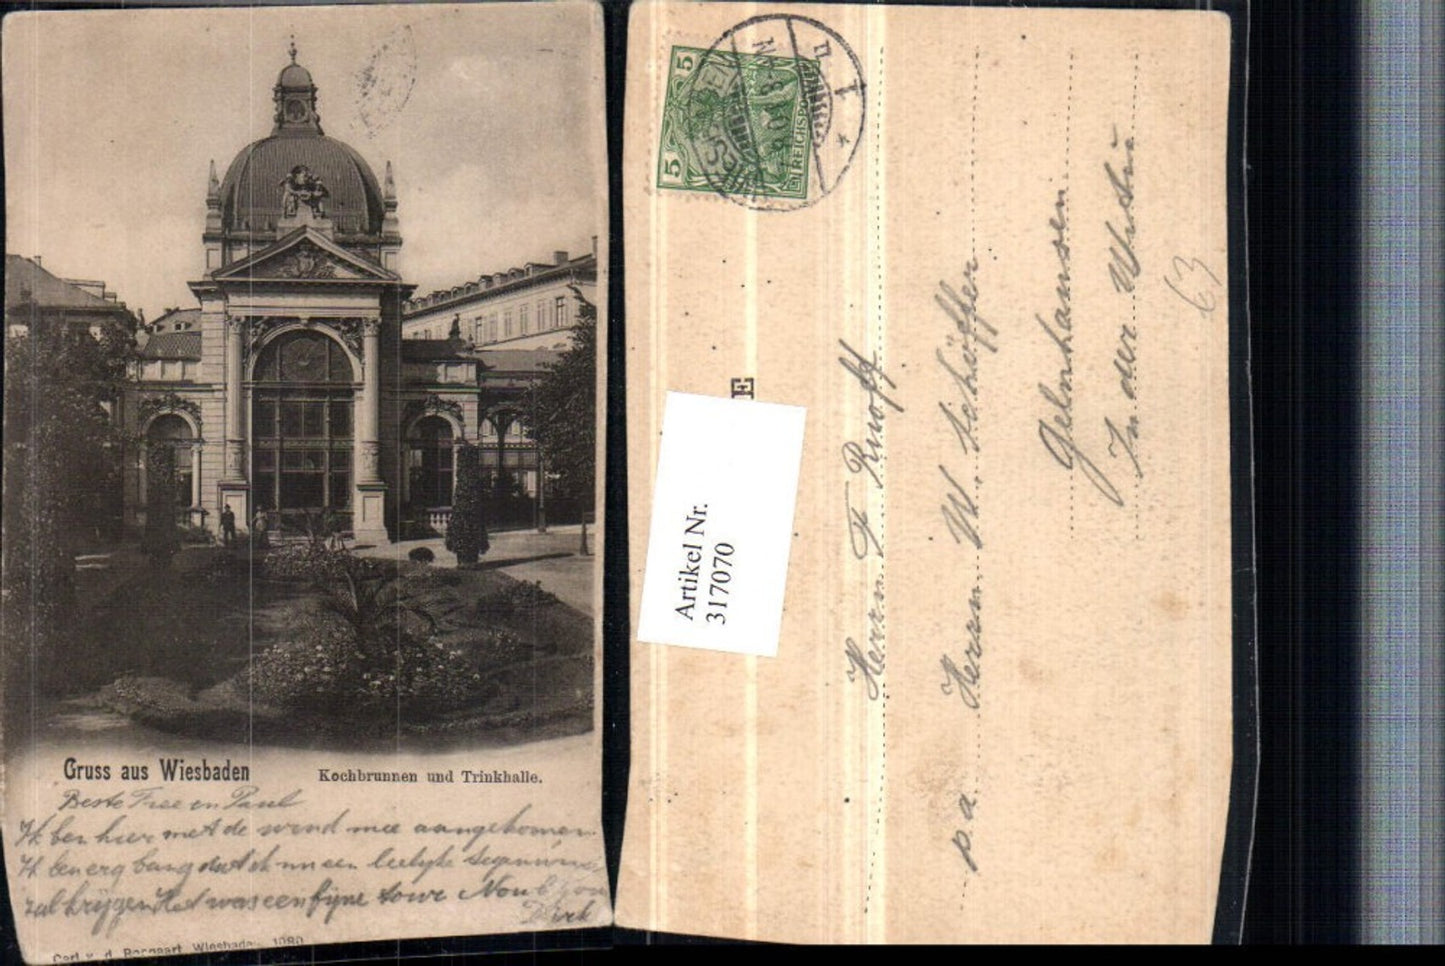 Gruss aus Wiesbaden
Kochbrunnen und Trinkhalle.
Beste Free en Paul
Ik ben hier met de wind mee aangekomen
Ik ben erg bang dat ik nu een leelyke
zal krijgen Het was een fijne tour
Dirk
Carl v. d. Boogaart, Wiesbaden 1080
5
5
REICHSPOST
WIESBADEN
1
Herrn F Knoff
p.a. Herrn W. Schöffer
Gelnhausen
In der
63
Artikel Nr.
317070